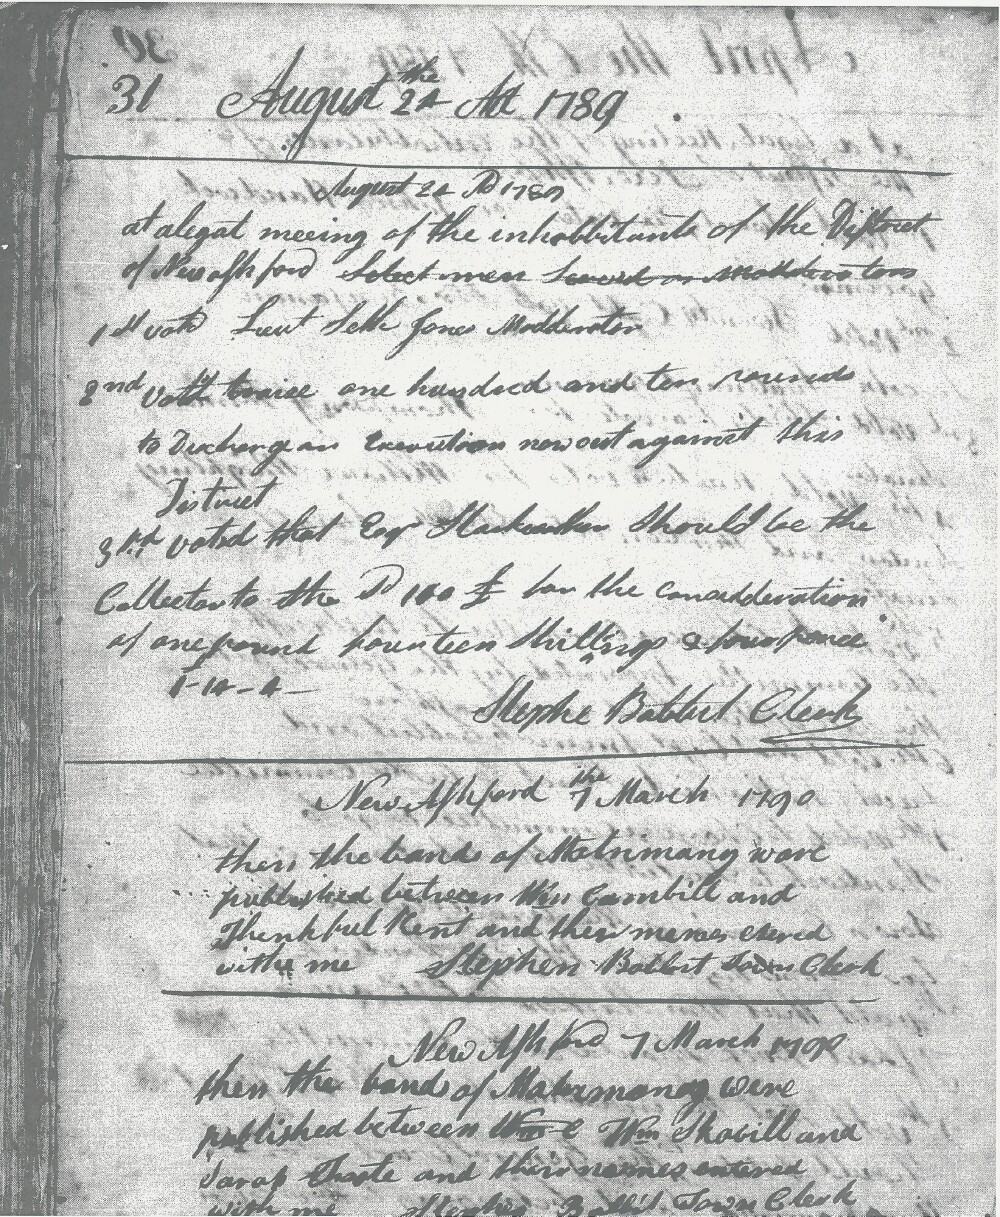 31 August the 24 AD 1789
August 24 AD 1789
at a legal meeing of the inhabbitants of the District
of Newashford Select men Searvd as Modderators
1 st votd Lieut Seth Jones Modderator
2nd votd to raise one hundred and ten pounds
to Discharge an Execution now out against this
District
3 rd voted that Esqr should be the
Collector to the D 100 £ for the consideration
of one pound fourteen shillings & four pence
1-14-4
Stephe Babbet Clerk
New Ashford the 7 March 1790
then the bands of Matrimany were
published between Wm Gambill and
Thenkful Kent and their names
with me Stephen Babbet Town Clerk
New Ashford 7 March 1790
then the bands of Matermoney were
published between Wm Skovill and
Sarah and thier names entered
with me Stephen Babbit Town Clerk